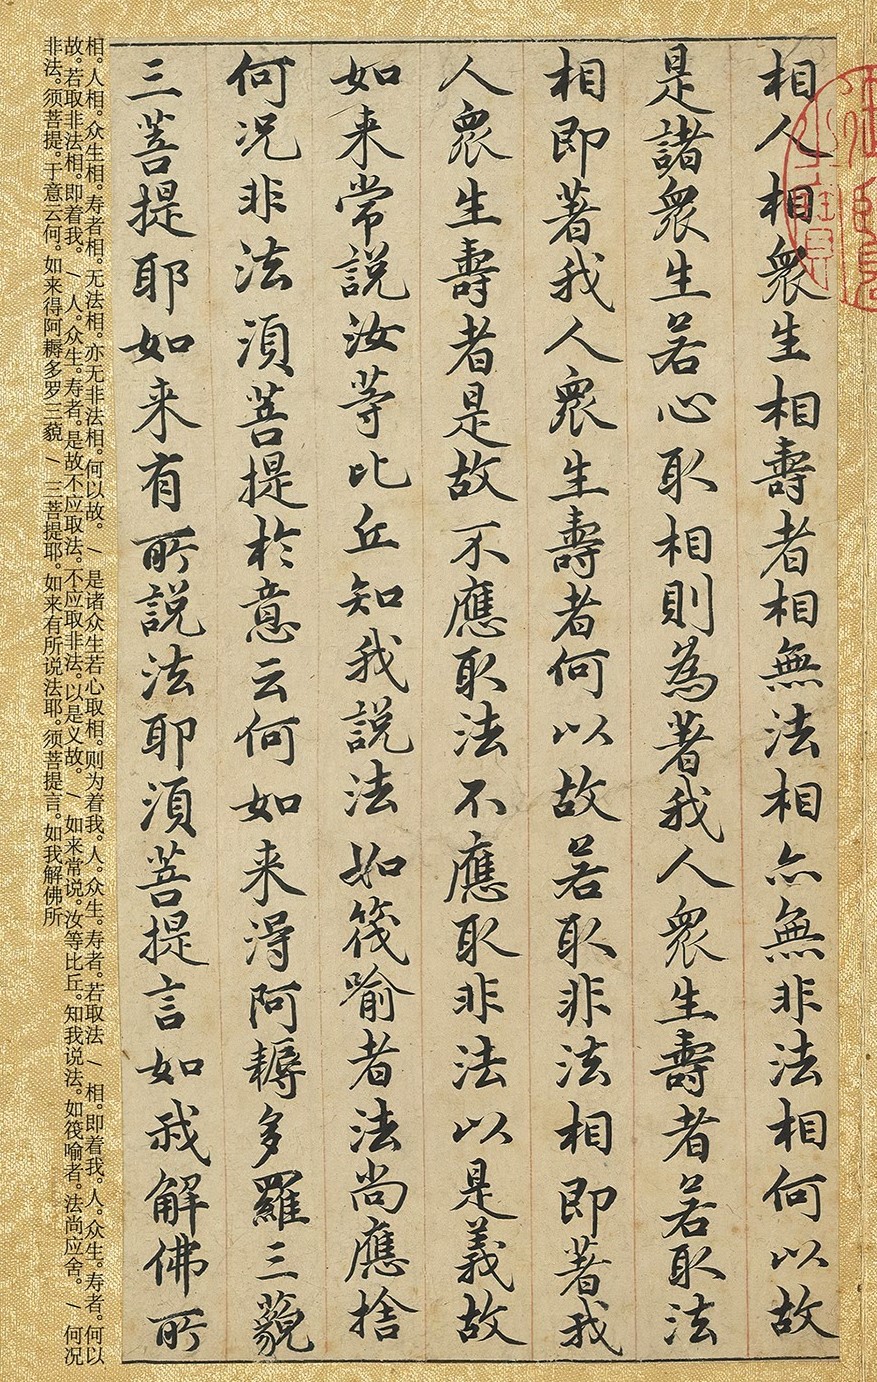 相人相衆生相壽者相無法相亦無非法相何以故
是諸衆生若心取相則為著我人衆生壽者若取法
相即著我人衆生壽者何以故若取非法相即著我
人衆生壽者是故不應取法不應取非法以是義故
如来常説汝等比丘知我説法如筏喻者法尚應捨
何况非法須菩提於意云何如来得阿耨多羅三藐
三菩提耶如来有所説法耶須菩提言如我解佛所
相。人相。众生相。寿者相。无法相。亦无非法相。何以故。/ 是诸众生若心取相。则为着我。人。众生。寿者。若取法 / 相。即着我。人。众生。寿者。何以
故。若取非法相。即着我。/ 人。众生。寿者。是故不应取法。不应取非法。以是义故。/ 如来常说。汝等比丘。知我说法。如筏喻者。法尚应舍。/ 何况
非法。须菩提。于意云何。如来得阿耨多罗三藐 / 三菩提耶。如来有所说法耶。须菩提言。如我解佛所